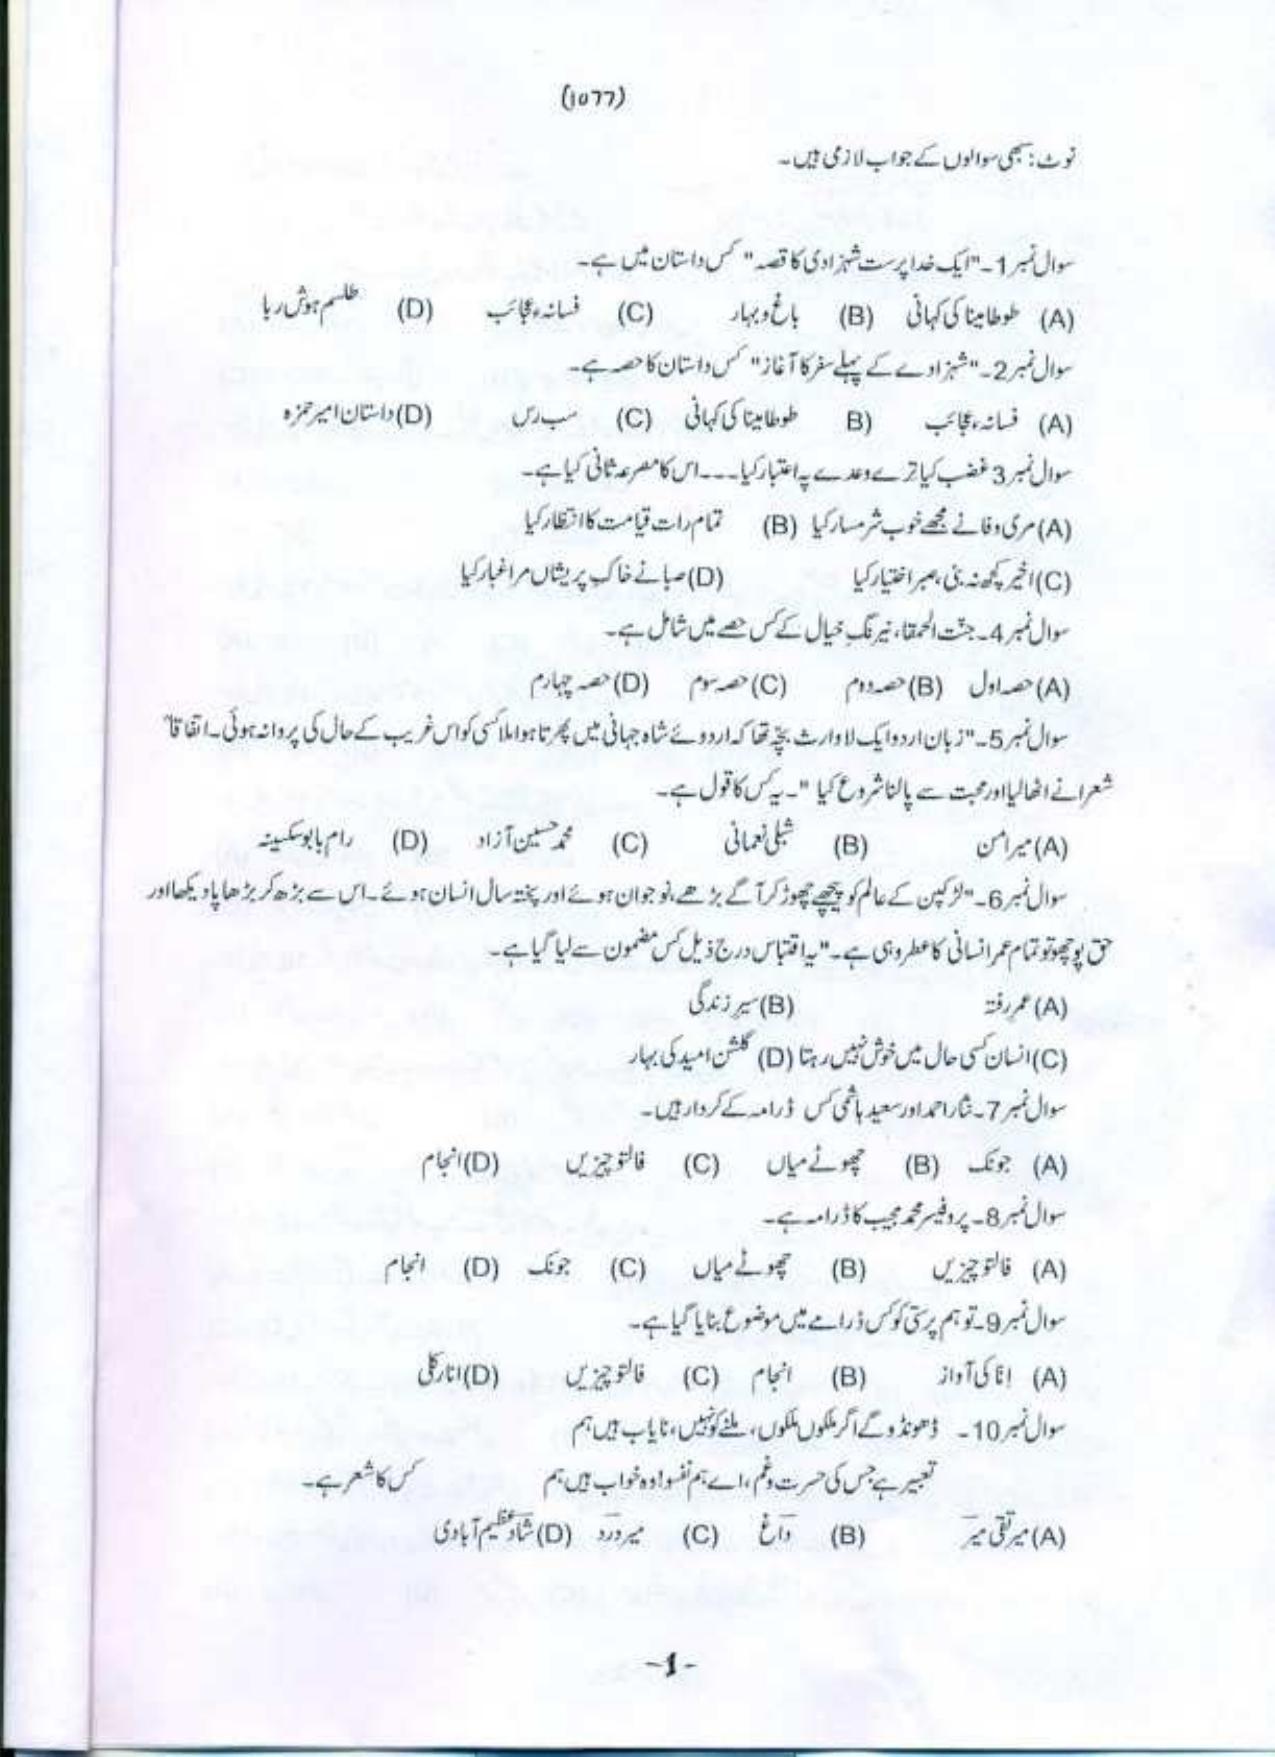 (1077)
نوٹ: سبھی سوالوں کے جواب لازمی ہیں۔
سوال نمبر 1۔ "ایک خدا پرست شہزادی کا قصہ" کس داستان میں ہے۔
(A) طوطا مینا کی کہانی (B) باغ و بہار (C) فسانۂ عجائب (D) طلسم ہوش ربا
سوال نمبر 2۔ "شہزادے کے پہلے سفر کا آغاز" کس داستان کا حصہ ہے۔
(A) فسانۂ عجائب (B طوطا مینا کی کہانی (C) سب رس (D) داستان امیر حمزہ
سوال نمبر 3 غضب کیا ترے وعدے پہ اعتبار کیا۔۔۔۔ اس کا مصرعہ ثانی کیا ہے۔
(A) مری وفا نے مجھے خوب شرمسار کیا (B) تمام رات قیامت کا انتظار کیا
(C) اخیر کچھ نہ بنی، صبر اختیار کیا (D) صبا نے خاک پریشاں مرا غبار کیا
سوال نمبر 4۔ جنّت الحمقا، نیرنگ خیال کے کس حصے میں شامل ہے۔
(A) حصہ اول (B) حصہ دوم (C) حصہ سوم (D) حصہ چہارم
سوال نمبر 5۔ "زبان اردو ایک لاوارث بچّہ تھا کہ اردوئے شاہ جہانی میں پھرتا ہوا ملا کسی کو اس غریب کے حال کی پروا نہ ہوئی۔ اتفاقاً
شعرا نے اٹھا لیا اور محبت سے پالنا شروع کیا "۔ یہ کس کا قول ہے۔
(A) میر امن (B) شبلی نعمانی (C) محمد حسین آزاد (D) رام بابو سکسینہ
سوال نمبر 6۔ "لڑکپن کے عالم کو پیچھے چھوڑ کر آگے بڑھے، نوجوان ہوئے اور پختہ سال انسان ہوئے۔ اس سے بڑھ کر بڑھاپا دیکھا اور
حق پوچھو تو تمام عمر انسانی کا عطر وہی ہے۔" یہ اقتباس درج ذیل کس مضمون سے لیا گیا ہے۔
(A) عمر رفتہ (B) سیر زندگی
(C) انسان کسی حال میں خوش نہیں رہتا (D) گلشن امید کی بہار
سوال نمبر 7۔ نثار احمد اور سعید ہاشمی کس ڈرامہ کے کردار ہیں۔
(A) جونک (B) چھوٹے میاں (C) فالتو چیزیں (D) انجام
سوال نمبر 8۔ پروفیسر محمد مجیب کا ڈرامہ ہے۔
(A) فالتو چیزیں (B) چھوٹے میاں (C) جونک (D) انجام
سوال نمبر 9۔ توہم پرستی کو کس ڈرامے میں موضوع بنایا گیا ہے۔
(A) انا کی آواز (B) انجام (C) فالتو چیزیں (D) انارکلی
سوال نمبر 10۔ ڈھونڈو گے اگر ملکوں ملکوں، ملنے کو نہیں، نایاب ہیں ہم
تعبیر ہے جس کی حسرت و غم، اے ہم نفسو! وہ خواب ہیں ہم کس کا شعر ہے۔
(A) میر تقی میر (B) داغ (C) میر درد (D) شاد عظیم آبادی
-1-